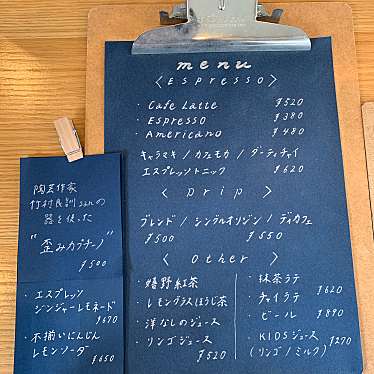 menu
〈ESPRESSO〉
・Cafe Latte ¥520
・ESPRESSO ¥380
・Americano ¥480
キャラマキ / カフェモカ / ダーティチャイ
エスプレッソトニック ¥620
〈Drip〉
ブレンド / シングルオリジン / デカフェ
¥500 ¥550
〈Other〉
・嬉野紅茶
・レモングラスほうじ茶
・洋なしのジュース
・リンゴジュース
¥520
・抹茶ラテ
・チャイラテ ¥620
・ビール ¥890
・KIDSジュース ¥270
(リンゴ / ミルク)
陶芸作家
竹村良訓sanの
器を使った
"歪みカプチーノ"
¥500
・エスプレッソ
ジンジャーレモネード
¥670
・不揃いにんじん
レモンソーダ
¥650